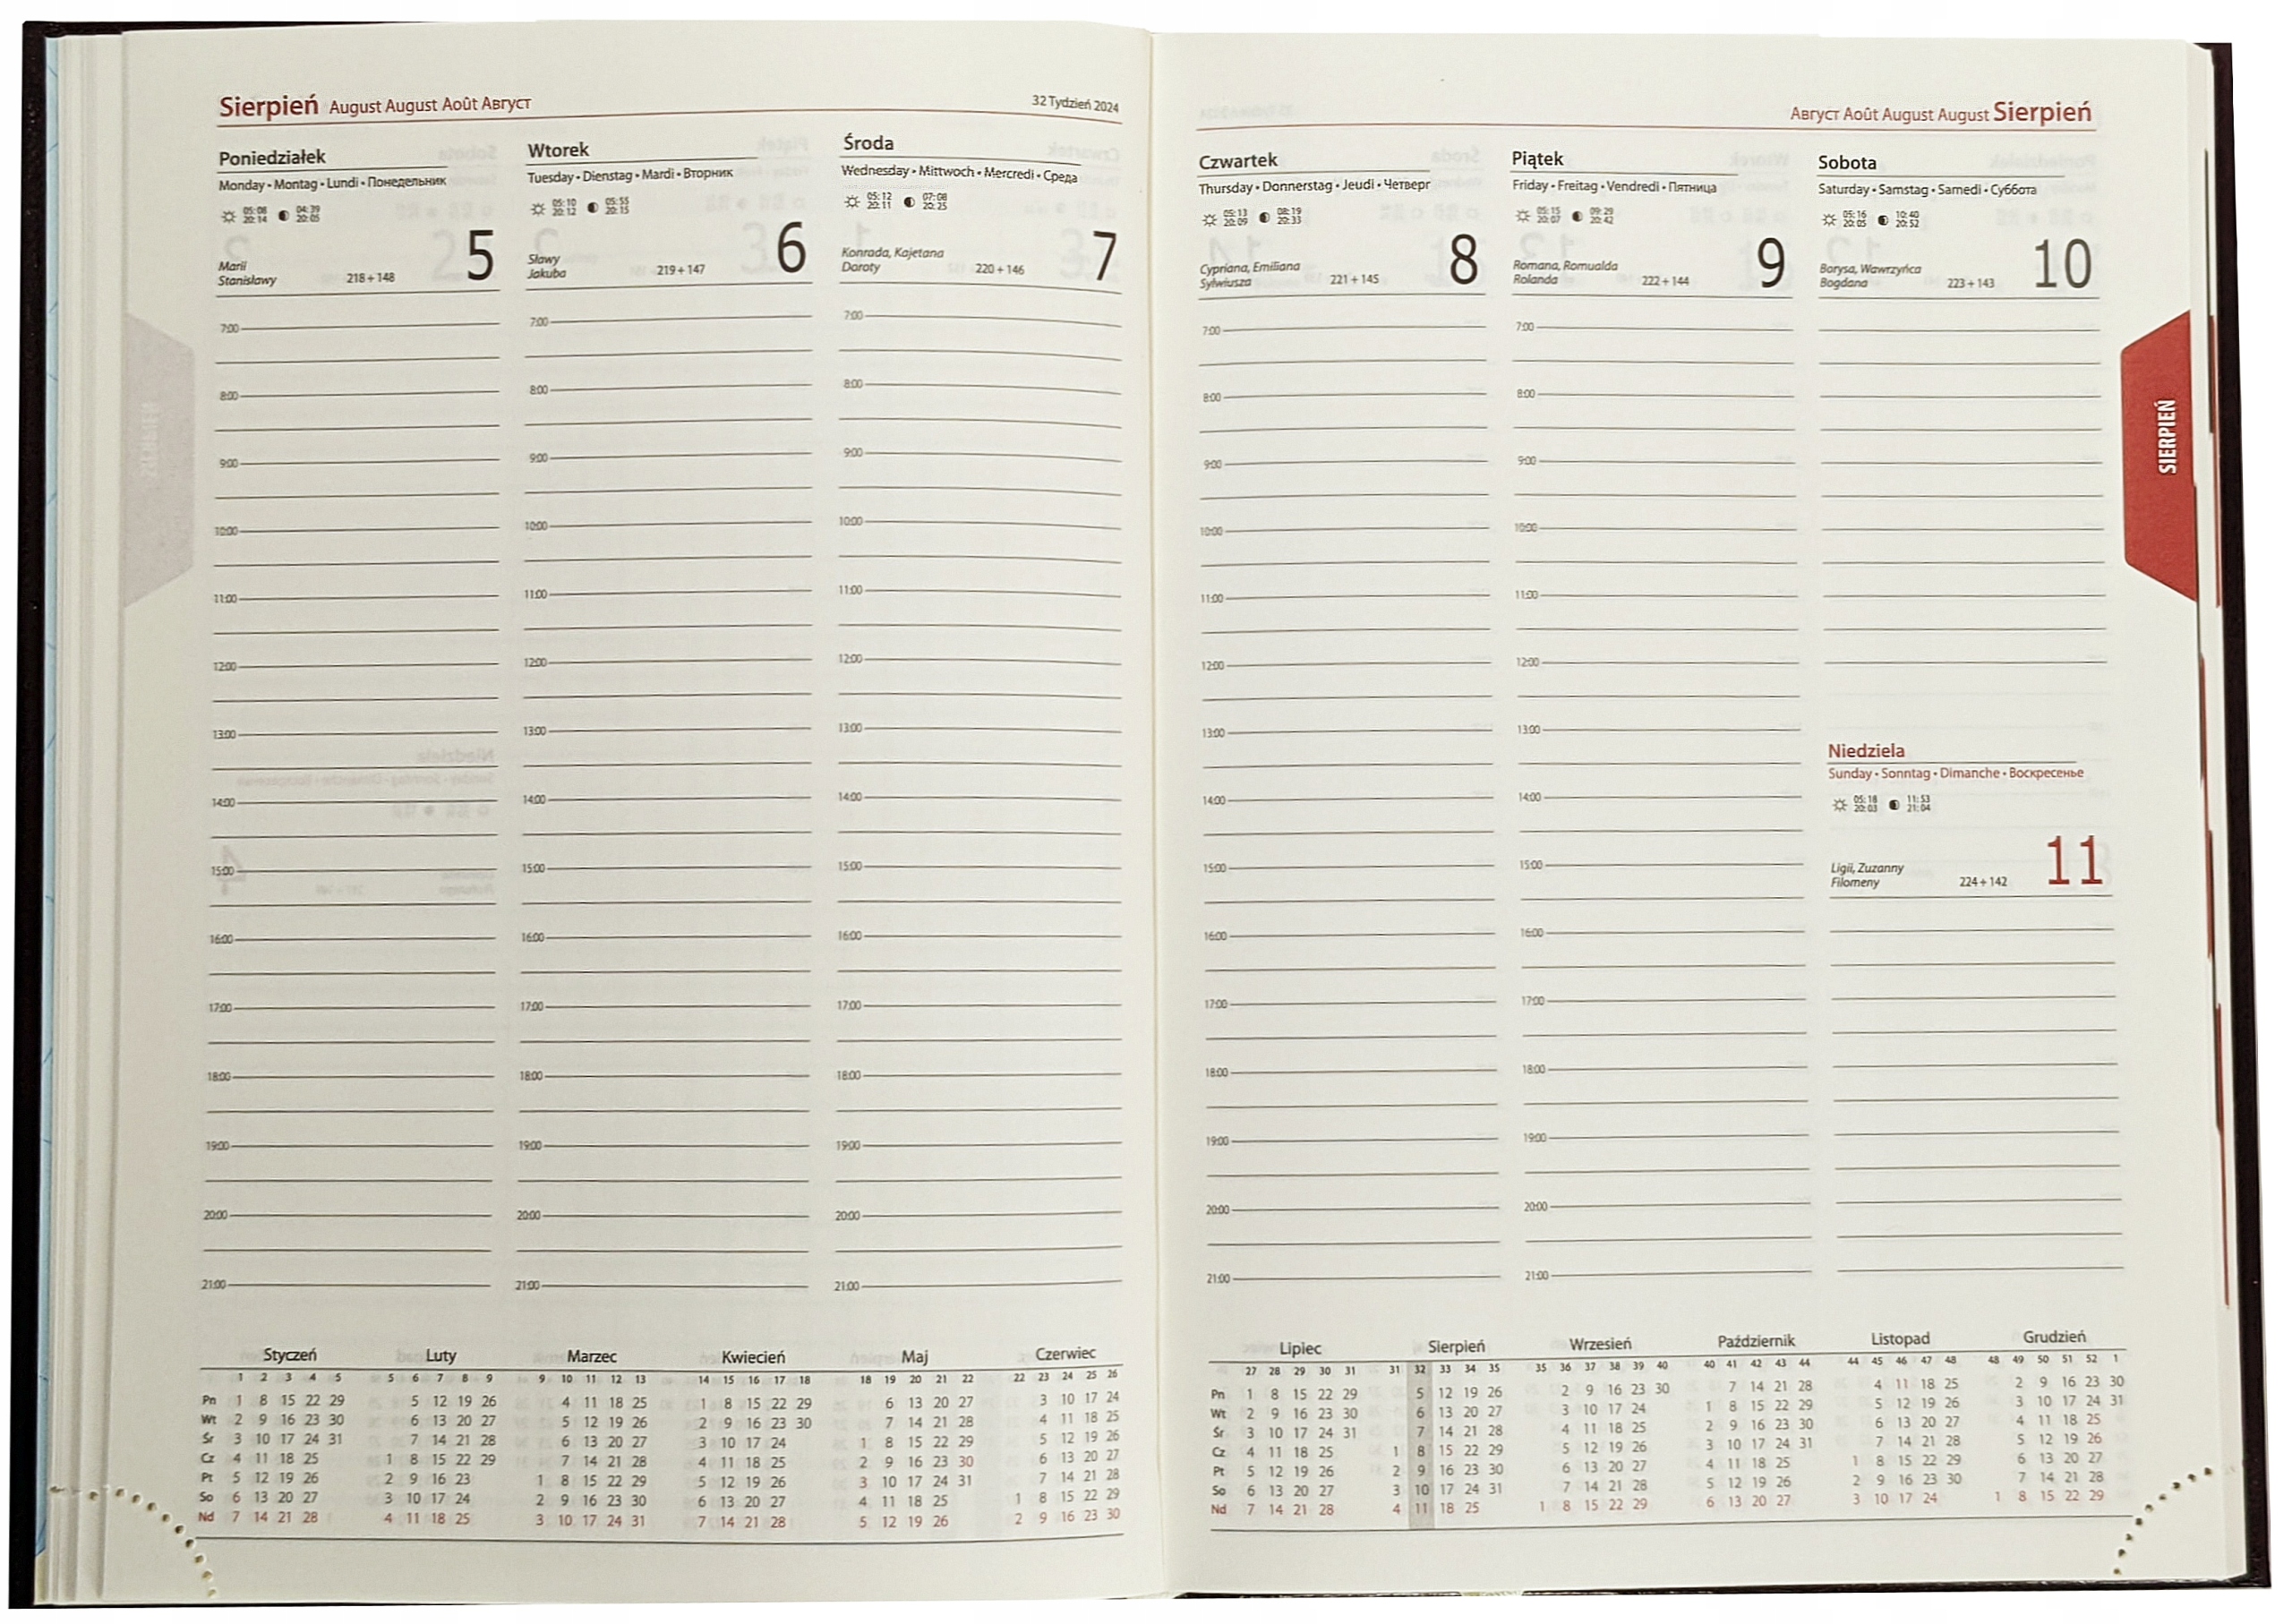 Sierpień August August Août Август
32 Tydzień 2024
Poniedziałek
Monday • Montag • Lundi • Понедельник
05:08 04:39
20:14 20:05
Marii
Stanisławy 218+148 5
Wtorek
Tuesday • Dienstag • Mardi • Вторник
05:10 05:55
20:12 20:15
Sławy
Jakuba 219+147 6
Środa
Wednesday • Mittwoch • Mercredi • Среда
05:12 07:08
20:11 20:25
Konrada, Kajetana
Doroty 220+146 7
7:00
8:00
9:00
10:00
11:00
12:00
13:00
14:00
15:00
16:00
17:00
18:00
19:00
20:00
21:00
7:00
8:00
9:00
10:00
11:00
12:00
13:00
14:00
15:00
16:00
17:00
18:00
19:00
20:00
21:00
7:00
8:00
9:00
10:00
11:00
12:00
13:00
14:00
15:00
16:00
17:00
18:00
19:00
20:00
21:00
Styczeń Luty Marzec Kwiecień Maj Czerwiec
1 2 3 4 5 5 6 7 8 9 9 10 11 12 13 14 15 16 17 18 18 19 20 21 22 22 23 24 25 26
Pn 1 8 15 22 29 5 12 19 26 4 11 18 25 1 8 15 22 29 6 13 20 27 3 10 17 24
Wt 2 9 16 23 30 6 13 20 27 5 12 19 26 2 9 16 23 30 7 14 21 28 4 11 18 25
Śr 3 10 17 24 31 7 14 21 28 6 13 20 27 3 10 17 24 1 8 15 22 29 5 12 19 26
Cz 4 11 18 25 1 8 15 22 29 7 14 21 28 4 11 18 25 2 9 16 23 30 6 13 20 27
Pt 5 12 19 26 2 9 16 23 1 8 15 22 29 5 12 19 26 3 10 17 24 31 7 14 21 28
So 6 13 20 27 3 10 17 24 2 9 16 23 30 6 13 20 27 4 11 18 25 1 8 15 22 29
Nd 7 14 21 28 4 11 18 25 3 10 17 24 31 7 14 21 28 5 12 19 26 2 9 16 23 30
Август Août August August Sierpień
Czwartek
Thursday • Donnerstag • Jeudi • Четверг
05:13 08:19
20:09 20:33
Cypriana, Emiliana
Sylwiusza 221+145 8
Piątek
Friday • Freitag • Vendredi • Пятница
05:15 09:29
20:07 20:42
Romana, Romualda
Rolanda 222+144 9
Sobota
Saturday • Samstag • Samedi • Суббота
05:16 10:40
20:05 20:52
Borysa, Wawrzyńca
Bogdana 223+143 10
7:00
8:00
9:00
10:00
11:00
12:00
13:00
14:00
15:00
16:00
17:00
18:00
19:00
20:00
21:00
7:00
8:00
9:00
10:00
11:00
12:00
13:00
14:00
15:00
16:00
17:00
18:00
19:00
20:00
21:00
Niedziela
Sunday • Sonntag • Dimanche • Воскресенье
05:18 11:53
20:03 21:04
Ligii, Zuzanny
Filomeny 224+142 11
SIERPIEŃ
Lipiec Sierpień Wrzesień Październik Listopad Grudzień
27 28 29 30 31 31 32 33 34 35 35 36 37 38 39 40 40 41 42 43 44 44 45 46 47 48 48 49 50 51 52 1
Pn 1 8 15 22 29 5 12 19 26 2 9 16 23 30 7 14 21 28 4 11 18 25 2 9 16 23 30
Wt 2 9 16 23 30 6 13 20 27 3 10 17 24 1 8 15 22 29 5 12 19 26 3 10 17 24 31
Śr 3 10 17 24 31 7 14 21 28 4 11 18 25 2 9 16 23 30 6 13 20 27 4 11 18 25
Cz 4 11 18 25 1 8 15 22 29 5 12 19 26 3 10 17 24 31 7 14 21 28 5 12 19 26
Pt 5 12 19 26 2 9 16 23 30 6 13 20 27 4 11 18 25 1 8 15 22 29 6 13 20 27
So 6 13 20 27 3 10 17 24 31 7 14 21 28 5 12 19 26 2 9 16 23 30 7 14 21 28
Nd 7 14 21 28 4 11 18 25 1 8 15 22 29 6 13 20 27 3 10 17 24 1 8 15 22 29